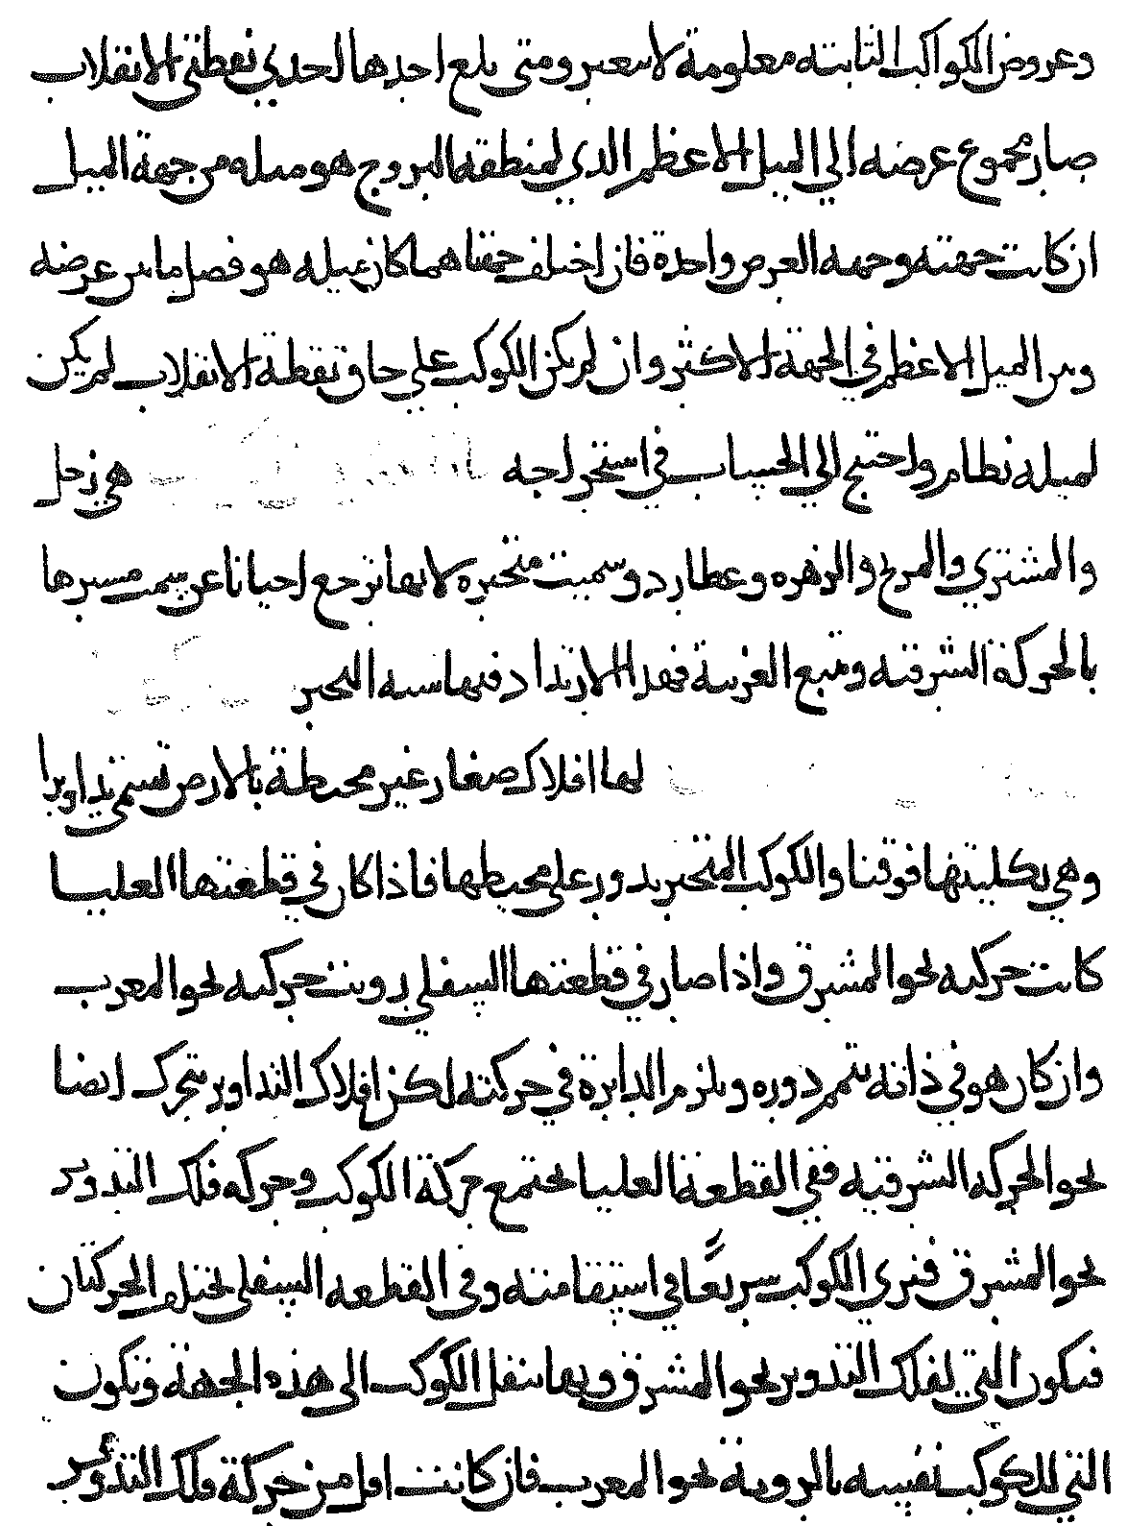 وعروض الكواكب الثابتة معلومة لا تتغير ومتى بلغ احدها احدي نقطتي الانقلاب
صار مجموع عرضه الي الميل الاعظم الذي لمنطقة البروج هو ميله من جهة الميل
ان كانت جهته وجهة العرض واحدة فان اختلفت جهتاهما كان ميله هو فضل ما بين عرضه
وبين الميل الاعظم في الجهة الاكثر وان لم يكن الكوكب علي حاق نقطة الانقلاب لم يكن
لميله نظام واحتيج الي الحساب في استخراجه هي زحل
والمشتري والمريخ والزهره وعطارد وسميت متحيره لانها ترجع احيانا عن سمت مسيرها
بالحركة الشرقية وتتبع الغربية فهذا الارتداد فيها شبه التحير
لها افلاك صغار غير محيطة بالارض تسمي تداوير
وهي بكليتها فوقنا والكوكب المتحير يدور علي محيطها فاذا كان في قطعتها العليا
كانت حركته نحو المشرق واذا صار في قطعتها السفلي رويت حركته نحو المغرب
وان كان هو في ذاته يتمم دوره ويلزم الدايرة في حركته لكن افلاك التداوير تتحرك ايضا
نحو الحركة الشرقية ففي القطعة العليا تجتمع حركة الكوكب وحركة فلك التدوير
نحو المشرق فنري الكوكب سريعا في استقامته وفي القطعه السفلي تختلف الحركتان
فتكون التي لفلك التدوير نحو المشرق وبها ينتقل الكوكب الى هذه الجهة وتكون
التي للكوكب نفسه بالروية نحو المغرب فان كانت اقل من حركة فلك التدوير